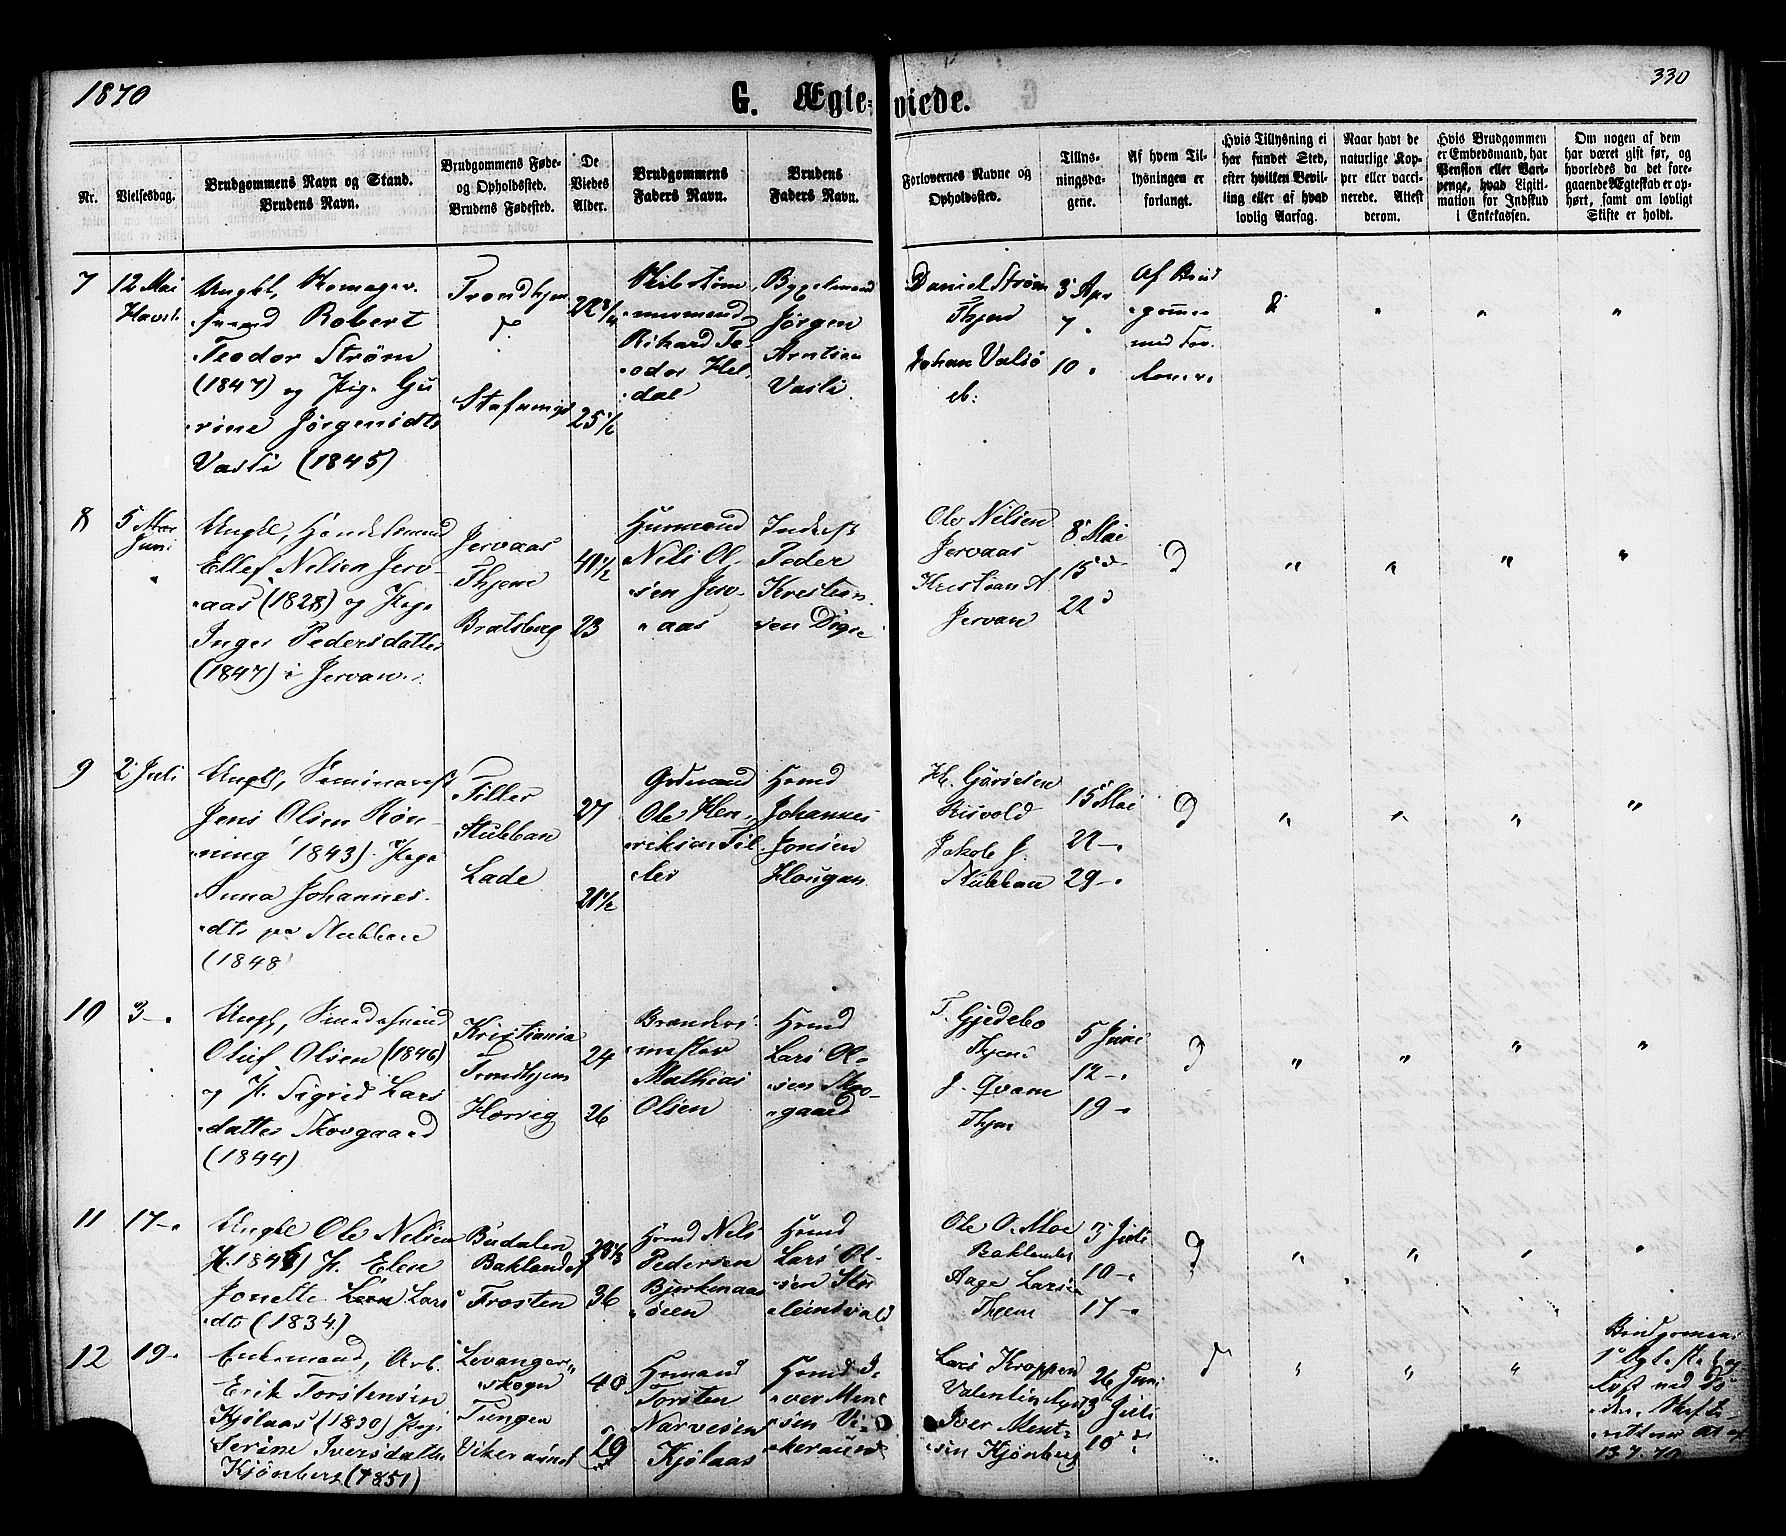 1870
G. Ægteviede.
330
Nr.
Vielsesdag.
Brudgommens Navn og Stand.
Brudens Navn.
Brudgommens Føde-
og Opholdssted.
Brudens Fødested.
De
Viedes
Alder.
Brudgommens
Faders Navn.
Brudens
Faders Navn.
Forlovernes Navne og
Opholdssted.
Tillys-
ningsda-
gene.
Af hvem Til-
lysningen er
forlangt.
Hvis Tillysning ei
har fundet Sted,
efter hvilken Bevil-
ling eller af hvad
lovlig Aarsag.
Naar havt de
naturlige Kop-
per eller vacci-
nerede. Attest
derom.
Hvis Brudgommen
er Embedsmand, har
Pension eller Vart-
penge, hvad Ligiti-
mation for Indskud
i Enkekassen.
Om nogen af dem
har været gift før, og
hvorledes da det fore-
gaaende Ægteskab er op-
hørt, samt om lovligt
Skifte er holdt.
7
12 Mai
Ungkl, Komager-
svend Robert
Teodor Strøm
(1847) og Pige Gu
rine Jørgensdtr
Vasli (1845)
Trondhjem
25 1/2
Rikard Te-
odor Hel-
dal
Jørgen
Arntsen
Vasli
Daniel Strøm
Thjem
Johan Valsö
eb:
3 Apr
7 "
10 "
Af Brud
gomme
med For
lover
8
5 Mai
Juni
Ungkl, Handelsmand
Ellef Nilsen Jerv-
aas (1828) og Pige
Inger Pedersdatter
(1847) i Jervan
Jervaas
Thjem
Bratsberg
41 1/2
23
Husmand
Nils Ol-
sen Jerv-
aas
Inderst
Peder
Kristian
sen Digre
Ole Nilsen
Jervaas
Kristian A
Jervan
8 Mai
15 d
22 d
9
2 Juli
Ungkl, Seminarist
Jens Olsen Røn-
ning (1843). Pige
Anna Johannes
dtr paa Stubban
(1848
Tiller
Stubban
Lade
27
21 1/2
Gdmand
Ole Hen-
riksen Til
ler
Hmd
Johannes
Jonsen
Haugan
Risvold
Jakob J.
Stubban
15 Mai
22 -
29 -
10
3 -
Ungk, Smedesvend
Oluf Olsen (1846)
og P. Sigrid Lars
datter Skovgaard
(1844)
Kristiania
Trondhjem
Horrig
24
26
Mathias
Olsen
Hmd
Lars Ol-
sen Skov-
gaard
T. Gjedebo
Thjem
J. Qvam
Thjem
5 Juni
12 -
19 -
11
17 -
Ungkl Ole Nilsen
P. Elen
Jonette Lars
dtr (1834)
Budalen
Baklandet
Frosten
36
Hmd Nils
Pedersen
Bjørkmaas
øien
Hmd
Lars Ol-
sen
Ole O. Moe
Baklandet
Aage Larsen
Thjem
3 Juli
10 -
17 -
12
19 -
Enkemand, Arb.
Erik Torstensen
Kjølaas (1830) Pige
Serine Iversdatter
Kjønberg (1851)
Levanger-
skogn
Tungen
Vikeraunet
40
29
Husmand
Torsten
Narvesen
Kjølaas
Hmd I-
ver Ment
sen Vi-
keraunet
Lars Kroppen
Valentinlyst
Iver Ment-
sen Kjønberg
26 Juni
3 Juli
10 d
Brudgommens
13.7.70